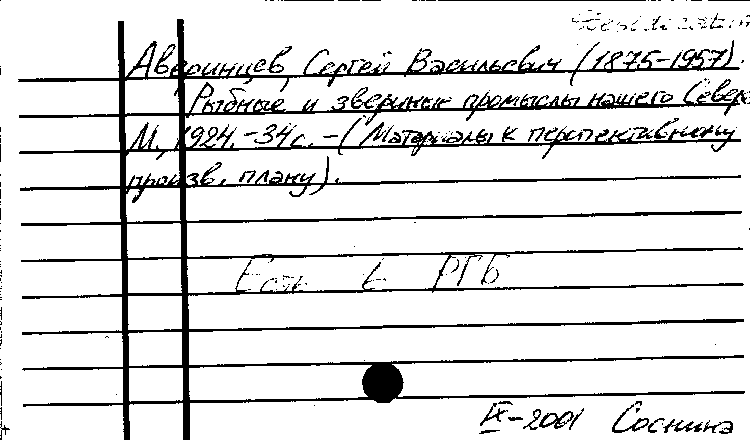 Аверинцев, Сергей Васильевич (1875-1957).
Рыбные и звериные промыслы нашего Севера
М., 1924. - 34с. - (Материалы к перспективному
произв. плану).
Есть в РГБ
IX-2001 Соснина